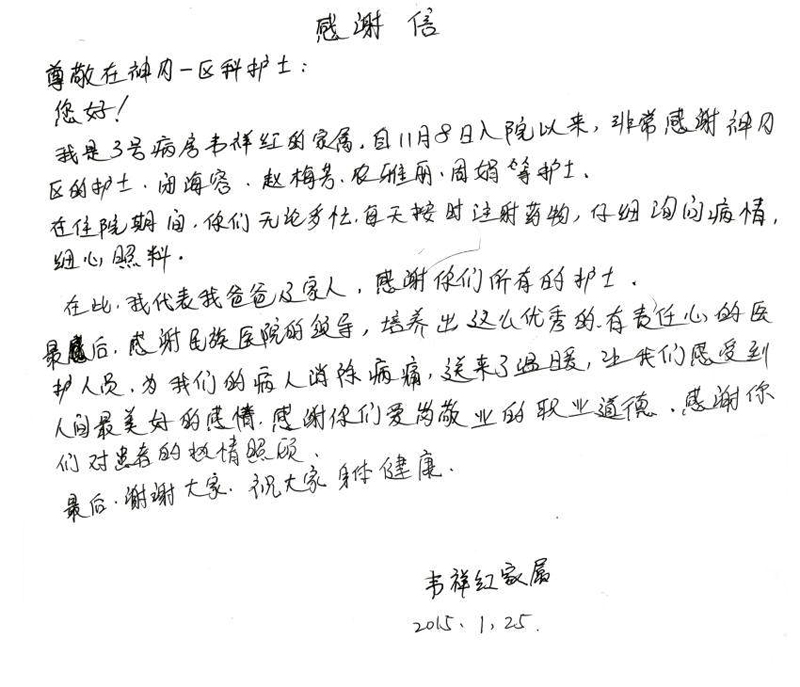 感谢信
尊敬在神内一区科护士：
您好！
我是3号病房韦祥红的家属，自11月8日入院以来，非常感谢神内
区的护士、闭海容、赵梅芳、农雅丽、周娟等护士.
在住院期间，你们无论多忙，每天按时注射药物，仔细询问病情，
细心照料.
在此，我代表我爸爸及家人，感谢你们所有的护士.
最后，感谢民族医院的领导，培养出这么优秀的、有责任心的医
护人员，为我们的病人消除病痛，送来了温暖，让我们感受到
人间最美好的感情，感谢你们爱岗敬业的职业道德、感谢你
们对患者的热情照顾.
最后，谢谢大家.祝大家身体健康.
韦祥红家属
2015、1、25.